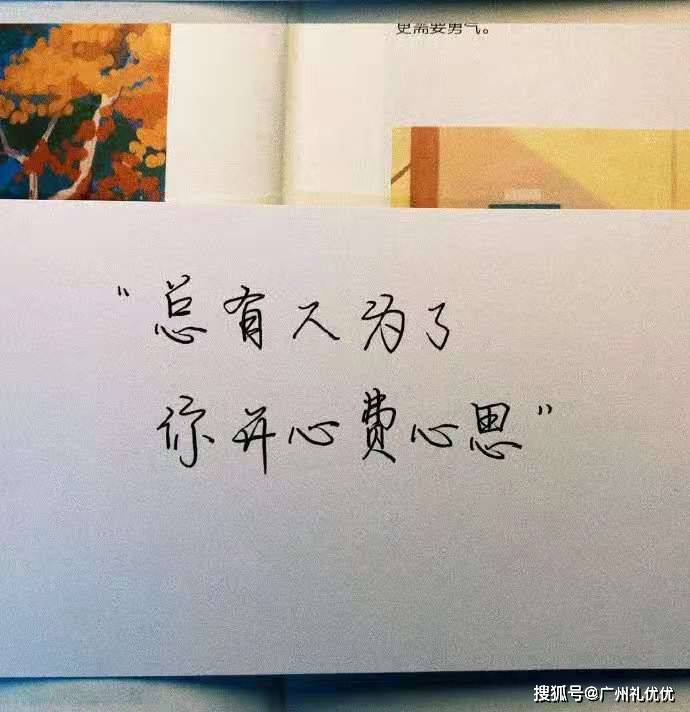 更需要勇气。
“总有人为了
你开心费心思”
搜狐号@广州礼优优